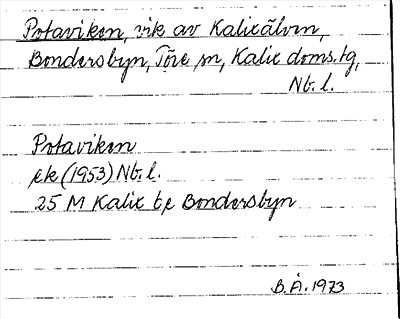 Potaviken, vik av Kalixälven,
Bondersbyn, Töre sn, Kalix doms.tg,
Nb. l.
Potaviken
ek (1953) Nb. l.
25 M Kalix
Bondersbyn
B.Å. 1973